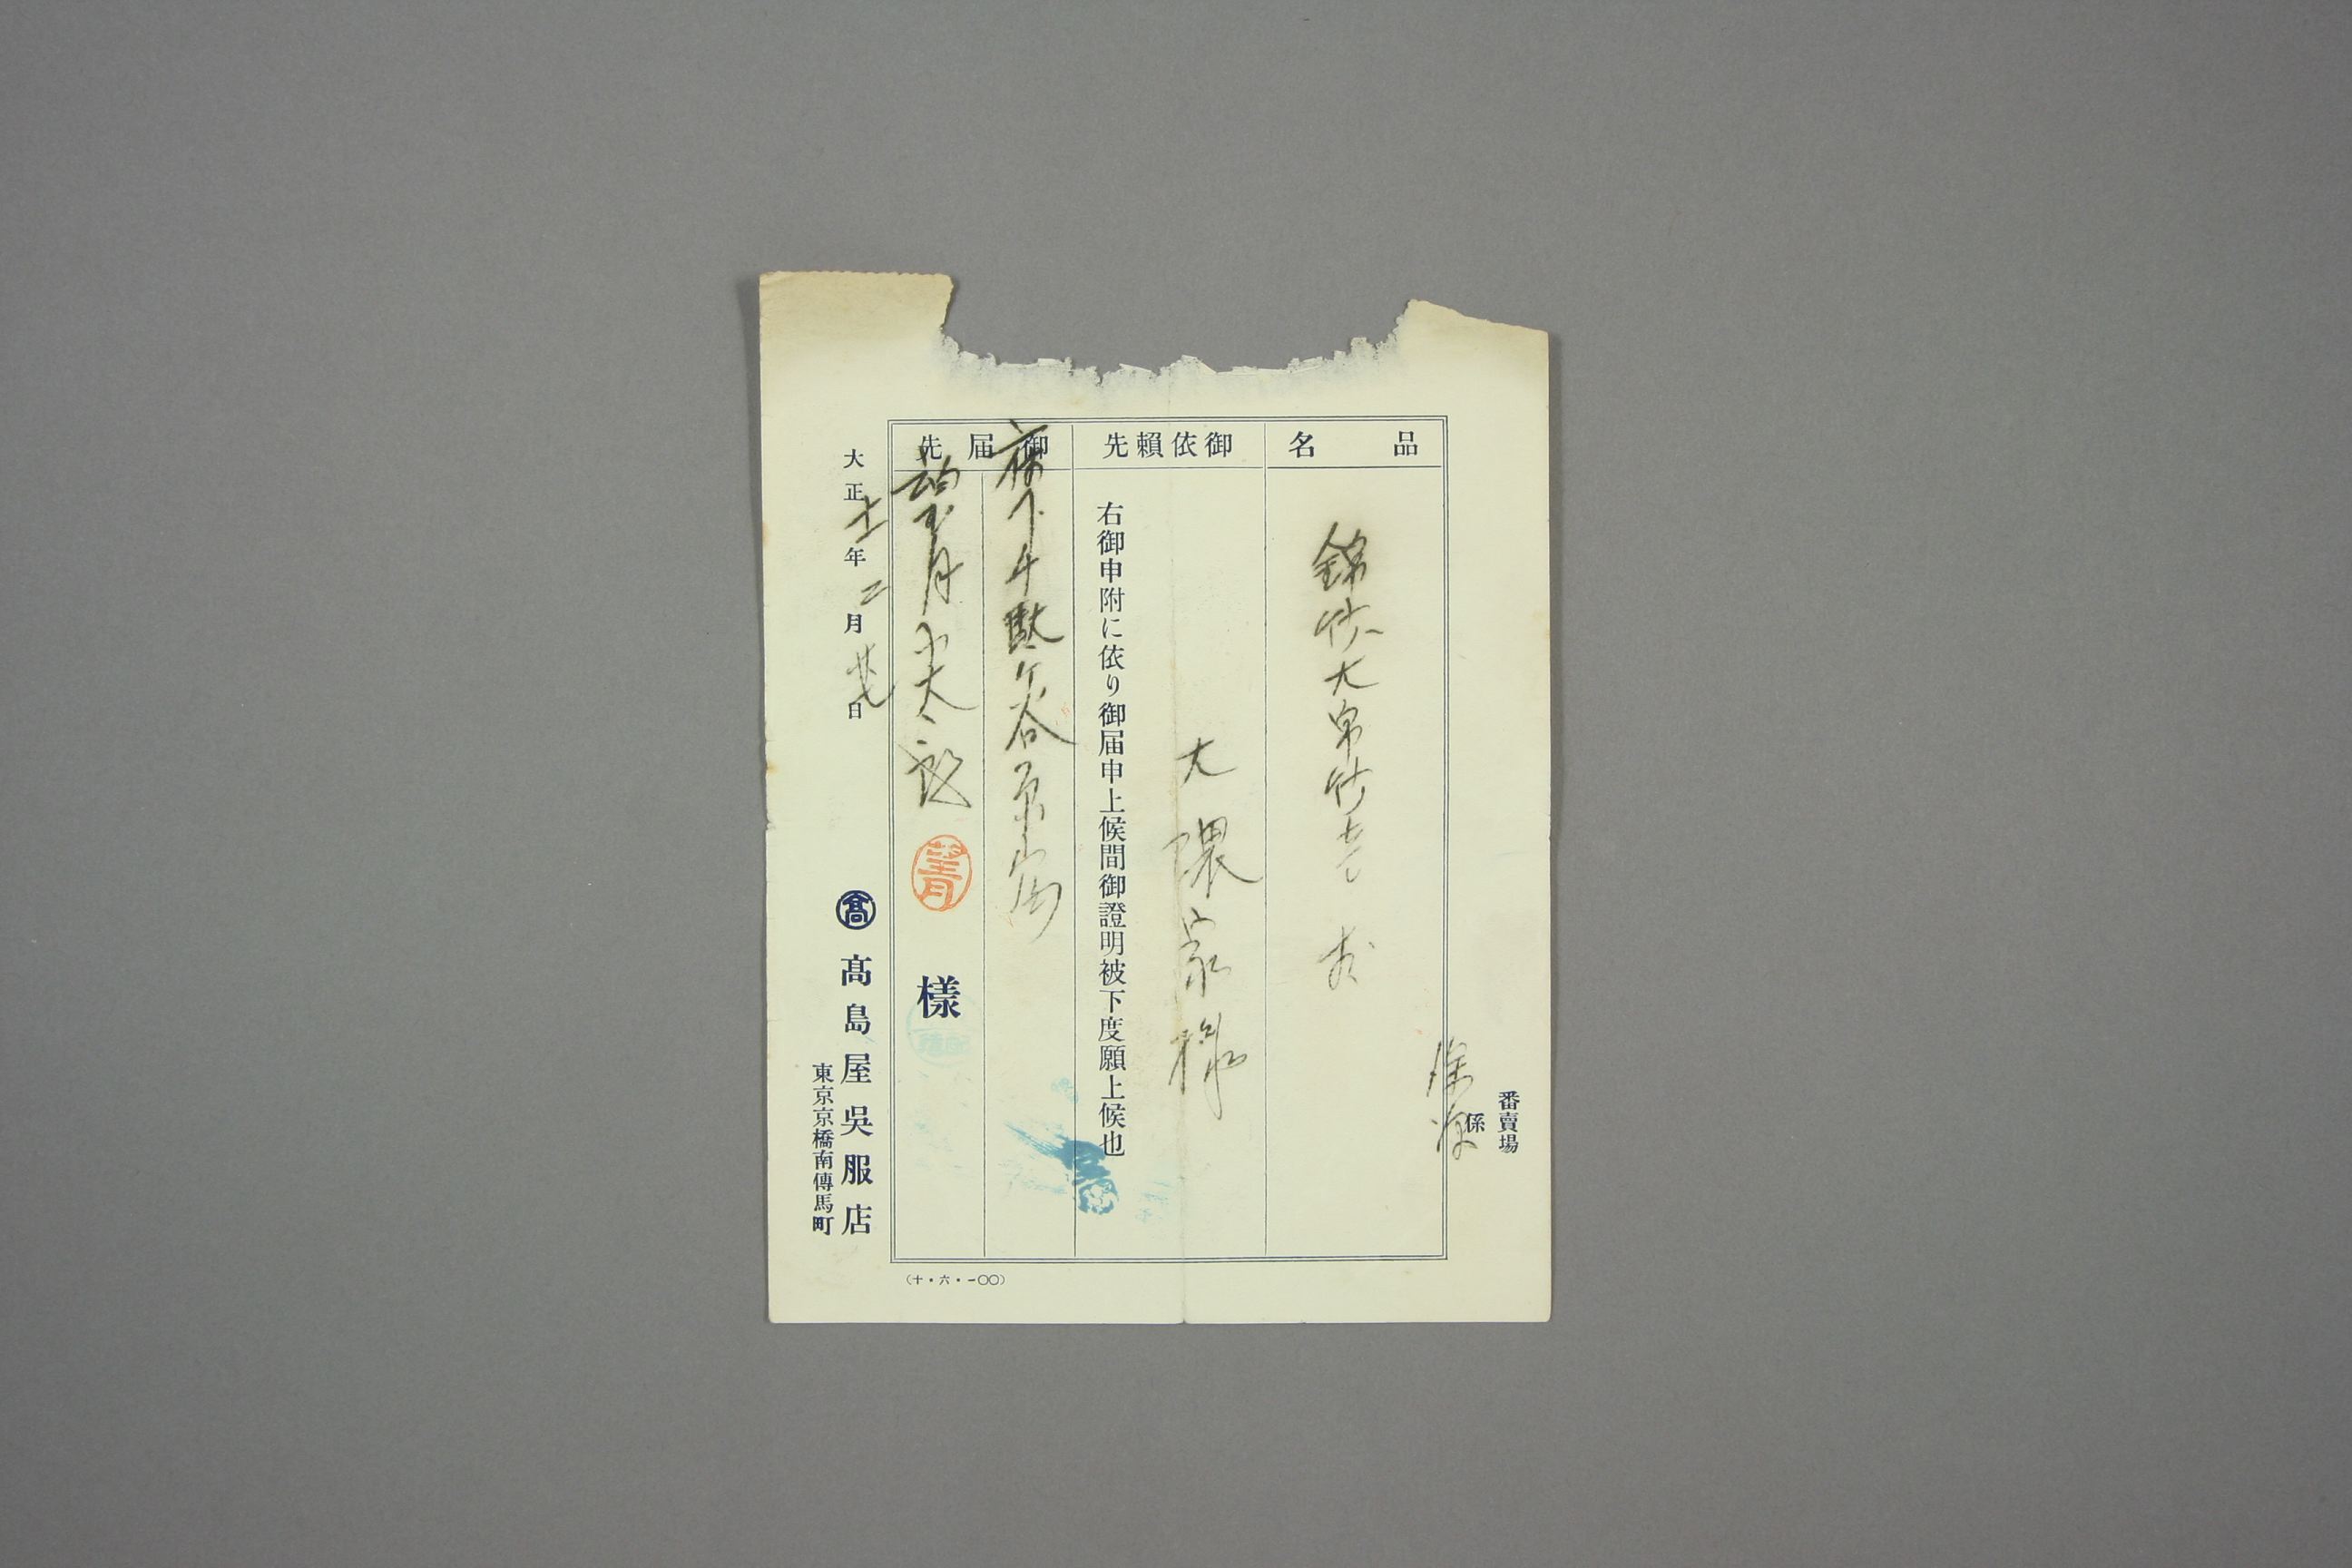 番賣場
係
品名
錦紗大帛紗壱
御依賴先
大隈家様
右御申附に依り御届申上候間御證明被下度願上候也
御届先
府下千駄ケ谷原宿
望月小太郎
望月
様
大正十一年二月廿七日
髙
髙島屋吳服店
東京京橋南傳馬町
(十・六・一〇〇)